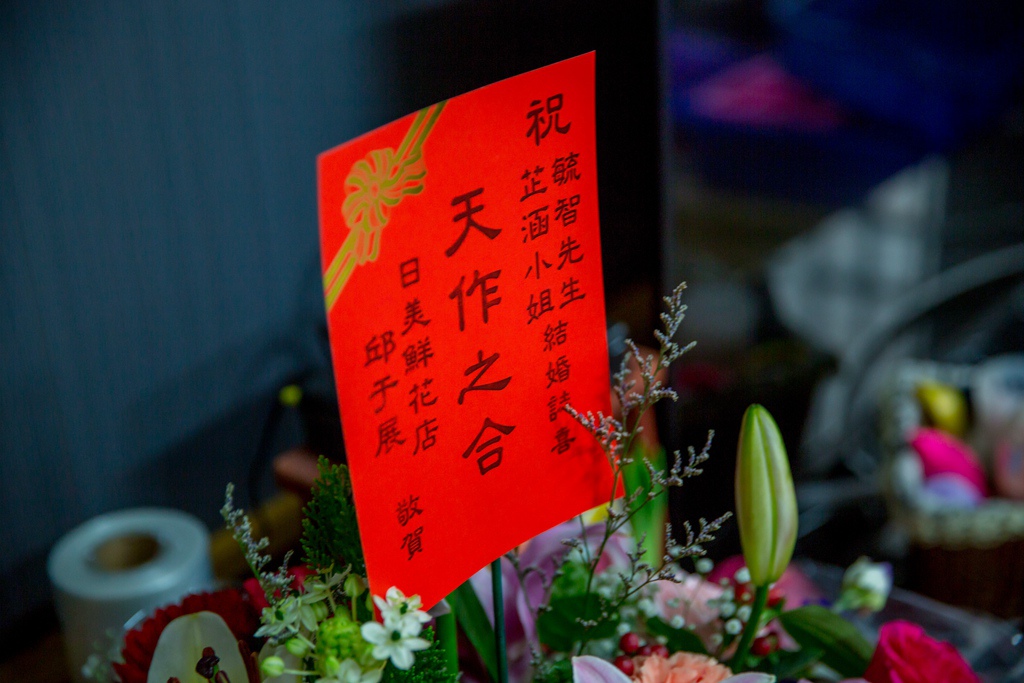 祝
毓智先生
芷涵小姐
結婚誌喜
天作之合
日美鮮花店
邱于展
敬賀